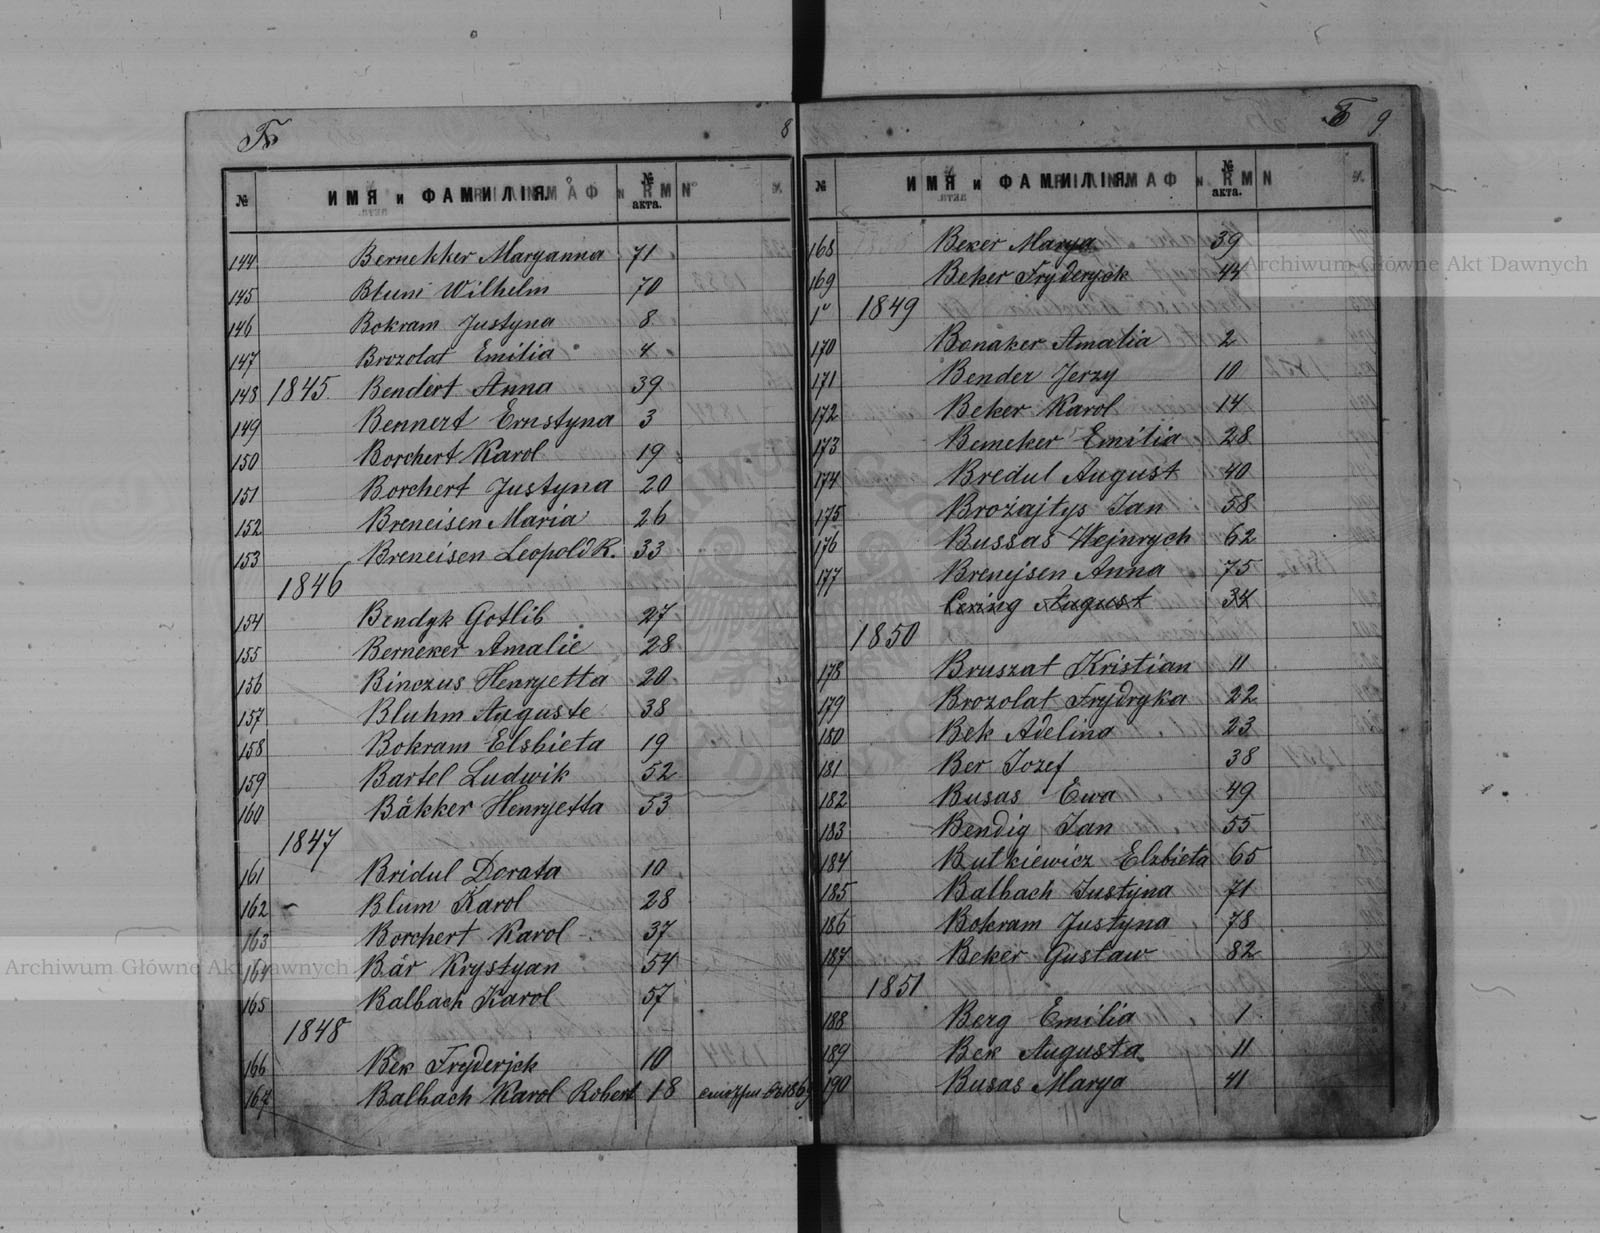 Б
8
№ ИМЯ и ФАМИЛІЯ № акта.
144 Bernekker Maryanna 71
145 Blum Wilhelm 70
146 Bokram Justyna 8
147 Brozolat Emilia 4
148 1845 Bendert Anna 39
149 Bennert Ernstyna 3
150 Borchert Karol 19
151 Borchert Justyna 20
152 Breneisen Maria 26
153 Breneisen Leopold R. 33
1846
154 Bendyk Gotlib 27
155 Berneker Amalie 28
156 Binczus Henryetta 20
157 Bluhm Auguste 38
158 Bokram Elsbieta 19
159 Bartel Ludwik 52
160 Bäkker Henryetta 53
1847
161 Bridul Dorata 10
162 Blum Karol 28
163 Borchert Karol 37
164 Bär Krystyan 54
165 Balbach Karol 57
1848
166 Bek Fryderjck 10
167 Balbach Karol Robert 18
Б 9
№ ИМЯ и ФАМИЛІЯ № акта.
168 Beker Marya 39
169 Beker Fryderyck 44
1" 1849
170 Bonaker Amalia 2
171 Bender Jerzy 10
172 Beker Karol 14
173 Berneker Emilia 28
174 Bredul August 40
175 Brożajtys Jan 58
176 Bussas Hejnrych 62
177 Brenejsen Anna 75
August 34
1850
178 Bruszat Kristian 11
179 Brozolat Frydryka 22
180 Bek Adelina 23
181 Ber Jozef 38
182 Busas Ewa 49
183 Bendig Jan 55
184 Butkiewicz Elzbieta 65
185 Balbach Justyna 71
186 Bokram Justyna 78
187 Beker Gustaw 82
1851
188 Berg Emilia 1
189 Bek Augusta 11
190 Busas Marya 41
Archiwum Główne Akt Dawnych
Archiwum Główne Akt Dawnych